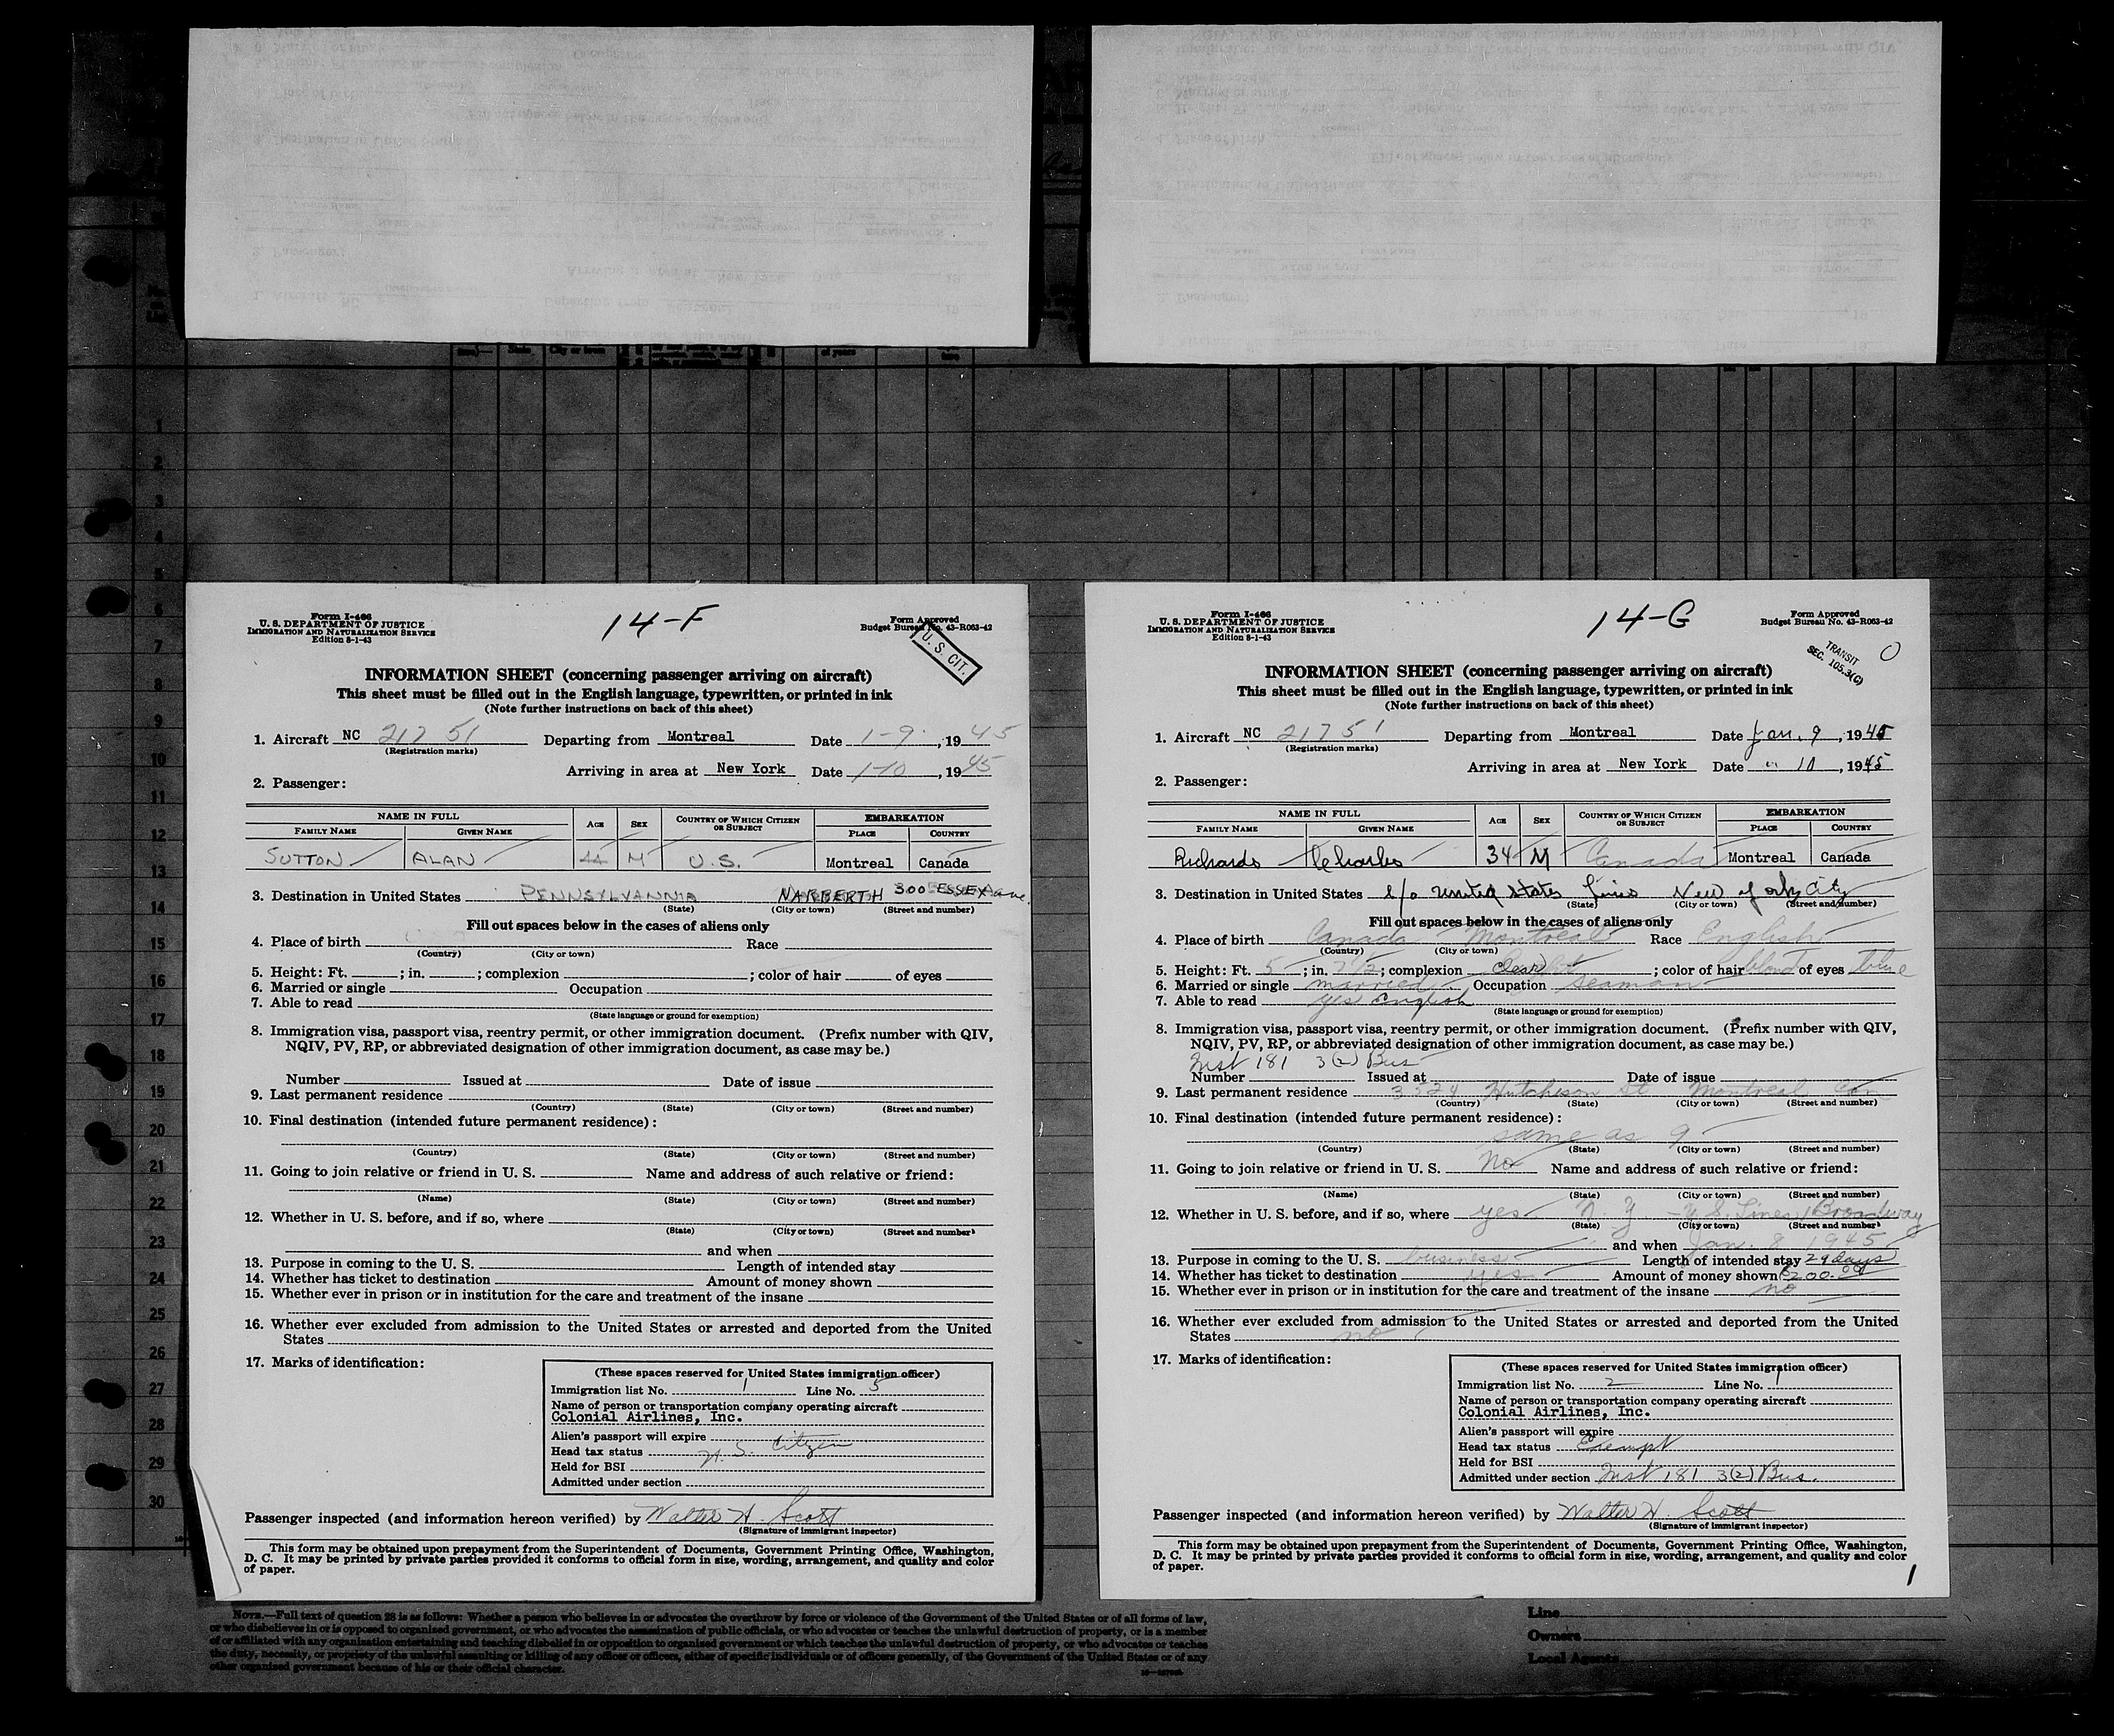 Form I-466
U. S. DEPARTMENT OF JUSTICE
IMMIGRATION AND NATURALIZATION SERVICE
Edition 8-1-43
14-F
Form Approved
Budget Bureau No. 43-R063-42
U. S. CIT.
INFORMATION SHEET (concerning passenger arriving on aircraft)
This sheet must be filled out in the English language, typewritten, or printed in ink
(Note further instructions on back of this sheet)
1. Aircraft NC 21751 Departing from Montreal Date 1-9, 1945
(Registration marks)
Arriving in area at New York Date 1-10, 1945
2. Passenger:
NAME IN FULL AGE SEX COUNTRY OF WHICH CITIZEN OR SUBJECT EMBARKATION
FAMILY NAME GIVEN NAME PLACE COUNTRY
SUTTON ALAN 44 M U.S. Montreal Canada
3. Destination in United States PENNSYLVANNIA NARBERTH 300 ESSEX ave.
(State) (City or town) (Street and number)
Fill out spaces below in the cases of aliens only
4. Place of birth Race
(Country) (City or town)
5. Height: Ft. ; in. ; complexion ; color of hair of eyes
6. Married or single Occupation
7. Able to read
(State language or ground for exemption)
8. Immigration visa, passport visa, reentry permit, or other immigration document. (Prefix number with QIV,
NQIV, PV, RP, or abbreviated designation of other immigration document, as case may be.)
Number Issued at Date of issue
9. Last permanent residence
(Country) (State) (City or town) (Street and number)
10. Final destination (intended future permanent residence):
(Country) (State) (City or town) (Street and number)
11. Going to join relative or friend in U. S. Name and address of such relative or friend:
(Name) (State) (City or town) (Street and number)
12. Whether in U. S. before, and if so, where
(State) (City or town) (Street and number)
and when
13. Purpose in coming to the U. S. Length of intended stay
14. Whether has ticket to destination Amount of money shown
15. Whether ever in prison or in institution for the care and treatment of the insane
16. Whether ever excluded from admission to the United States or arrested and deported from the United
States
17. Marks of identification:
(These spaces reserved for United States immigration officer)
Immigration list No. 1 Line No. 5
Name of person or transportation company operating aircraft
Colonial Airlines, Inc.
Alien's passport will expire
Head tax status U. S. Citizen
Held for BSI
Admitted under section
Passenger inspected (and information hereon verified) by Walter H. Scott
(Signature of immigrant inspector)
This form may be obtained upon prepayment from the Superintendent of Documents, Government Printing Office, Washington,
D. C. It may be printed by private parties provided it conforms to official form in size, wording, arrangement, and quality and color
of paper.
Form I-466
U. S. DEPARTMENT OF JUSTICE
IMMIGRATION AND NATURALIZATION SERVICE
Edition 8-1-43
14-G
Form Approved
Budget Bureau No. 43-R063-42
TRANSIT
SEC. 105.3(C)
INFORMATION SHEET (concerning passenger arriving on aircraft)
This sheet must be filled out in the English language, typewritten, or printed in ink
(Note further instructions on back of this sheet)
1. Aircraft NC 21751 Departing from Montreal Date Jan. 9, 1945
(Registration marks)
Arriving in area at New York Date " 10, 1945
2. Passenger:
NAME IN FULL AGE SEX COUNTRY OF WHICH CITIZEN OR SUBJECT EMBARKATION
FAMILY NAME GIVEN NAME PLACE COUNTRY
Richards Charles 34 M Canada Montreal Canada
3. Destination in United States c/o United States Lines New York City
(State) (City or town) (Street and number)
Fill out spaces below in the cases of aliens only
4. Place of birth Canada Montreal Race English
(Country) (City or town)
5. Height: Ft. 5 ; in. 7 1/2 ; complexion clear ; color of hair blond of eyes blue
6. Married or single married Occupation seaman
7. Able to read yes English
(State language or ground for exemption)
8. Immigration visa, passport visa, reentry permit, or other immigration document. (Prefix number with QIV,
NQIV, PV, RP, or abbreviated designation of other immigration document, as case may be.)
Inst 181 3(2) Bus
Number Issued at Date of issue
9. Last permanent residence 3524 Hutchison St Montreal Can
(Country) (State) (City or town) (Street and number)
10. Final destination (intended future permanent residence):
same as 9
(Country) (State) (City or town) (Street and number)
11. Going to join relative or friend in U. S. No Name and address of such relative or friend:
(Name) (State) (City or town) (Street and number)
12. Whether in U. S. before, and if so, where yes N. Y - U. S. Lines 1 Broadway
(State) (City or town) (Street and number)
and when Jan. 8 1945
13. Purpose in coming to the U. S. business Length of intended stay 29 days
14. Whether has ticket to destination yes Amount of money shown $200.00
15. Whether ever in prison or in institution for the care and treatment of the insane no
16. Whether ever excluded from admission to the United States or arrested and deported from the United
States no
17. Marks of identification:
(These spaces reserved for United States immigration officer)
Immigration list No. 2 Line No. 1
Name of person or transportation company operating aircraft
Colonial Airlines, Inc.
Alien's passport will expire
Head tax status Exempt
Held for BSI
Admitted under section Inst 181 3(2) Bus.
Passenger inspected (and information hereon verified) by Walter H. Scott
(Signature of immigrant inspector)
This form may be obtained upon prepayment from the Superintendent of Documents, Government Printing Office, Washington,
D. C. It may be printed by private parties provided it conforms to official form in size, wording, arrangement, and quality and color
of paper.
1
1
2
3
4
5
6
7
8
9
10
11
12
13
14
15
16
17
18
19
20
21
22
23
24
25
26
27
28
29
30
NOTE.—Full text of question 28 is as follows: Whether a person who believes in or advocates the overthrow by force or violence of the Government of the United States or of all forms of law,
or who disbelieves in or is opposed to organized government, or who advocates the assassination of public officials, or who advocates or teaches the unlawful destruction of property, or is a member
of or affiliated with any organization entertaining and teaching disbelief in or opposition to organized government or which teaches the unlawful destruction of property, or who advocates or teaches
the duty, necessity, or propriety of the unlawful assaulting or killing of any officer or officers, either of specific individuals or of officers generally, of the Government of the United States or of any
other organized government because of his or their official character.
Line
Owners
Local Agents